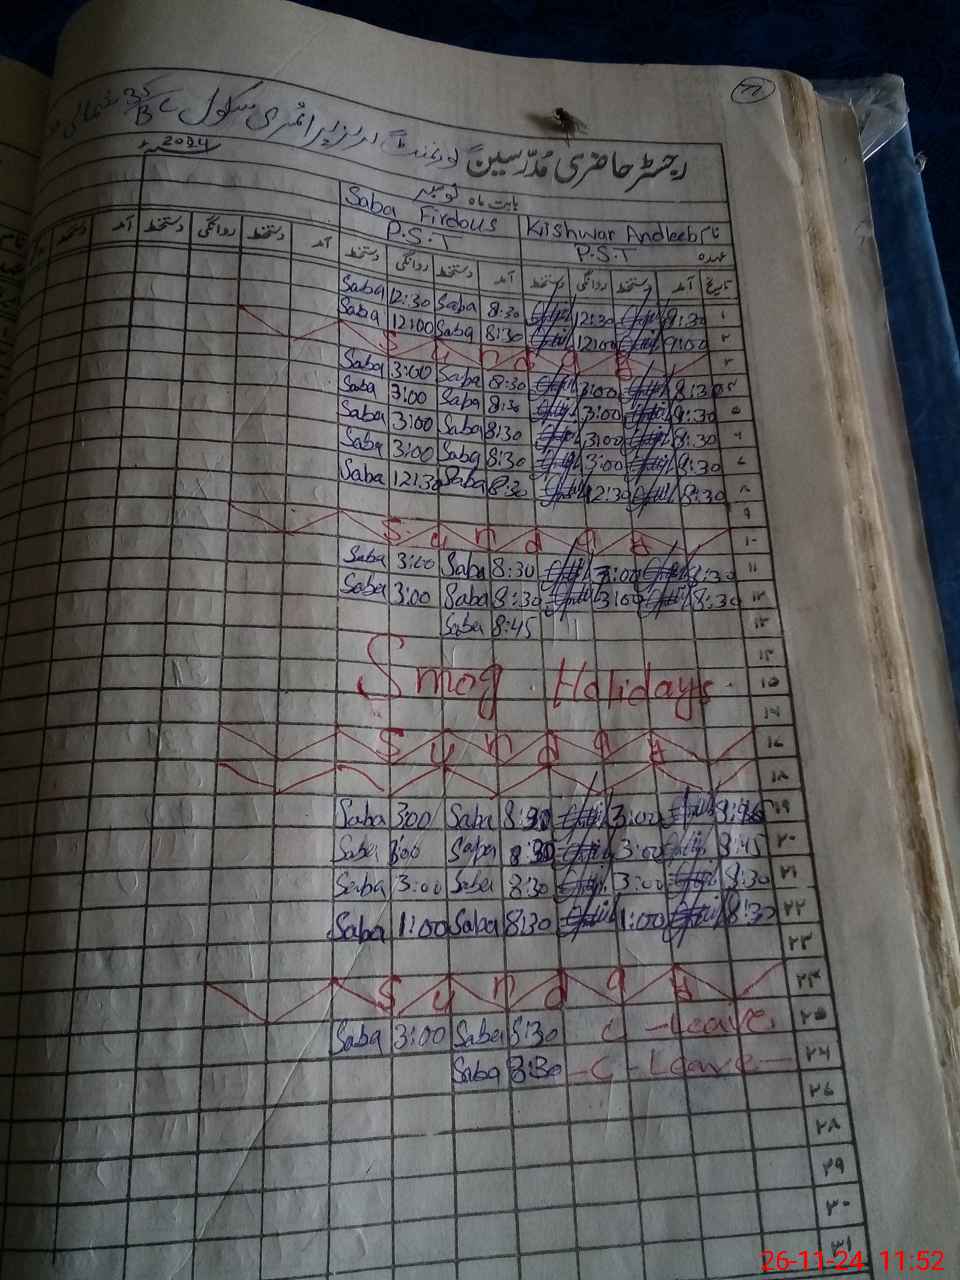 ۷۷
رجسٹر حاضری مدرسین گورنمنٹ گرلز پرائمری سکول 35/BC
بابت ماہ نومبر 2024ء
نام Kishwar Andleeb Saba Firdous
عہدہ P.S.T P.S.T
تاریخ آمد دستخط روانگی دستخط آمد دستخط روانگی دستخط آمد دستخط روانگی دستخط آمد دستخط
۱ 8:30 12:30 8:30 Saba 12:30 Saba
۲ 9:00 12:00 8:30 Saba 12:00 Saba
۳ Sunday
8:30 3:00 8:30 Saba 3:00 Saba
۵ 8:30 3:00 8:30 Saba 3:00 Saba
۶ 8:30 3:00 8:30 Saba 3:00 Saba
۷ 8:30 3:00 8:30 Saba 3:00 Saba
۸ 8:30 12:30 8:30 Saba 12:30 Saba
۹
۱۰ Sunday
۱۱ 8:30 3:00 8:30 Saba 3:00 Saba
۱۲ 8:30 3:00 8:30 Saba 3:00 Saba
۱۳ 8:45 Saba
۱۴
۱۵ Smog Holidays
۱۶
۱۷ Sunday
۱۸
۱۹ 3:00 8:30 Saba 3:00 Saba
۲۰ 8:45 3:00 8:30 Saba 3:00 Saba
۲۱ 8:30 3:00 8:30 Saba 3:00 Saba
۲۲ 8:30 1:00 8:30 Saba 1:00 Saba
۲۳
۲۴ Sunday
۲۵ C-Leave 8:30 Saba 3:00 Saba
۲۶ C-Leave 8:30 Saba
۲۷
۲۸
۲۹
۳۰
۳۱
26-11-24 11:52